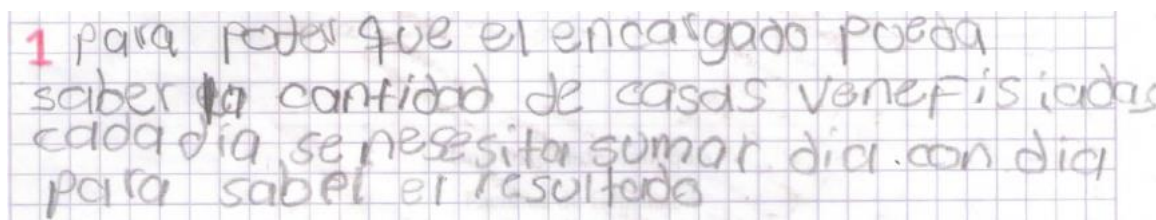 1 para poder que el encargado pueda
saber la cantidad de casas venefisiadas
cada dia se nesesita sumar dia.con dia
para saber el resultado